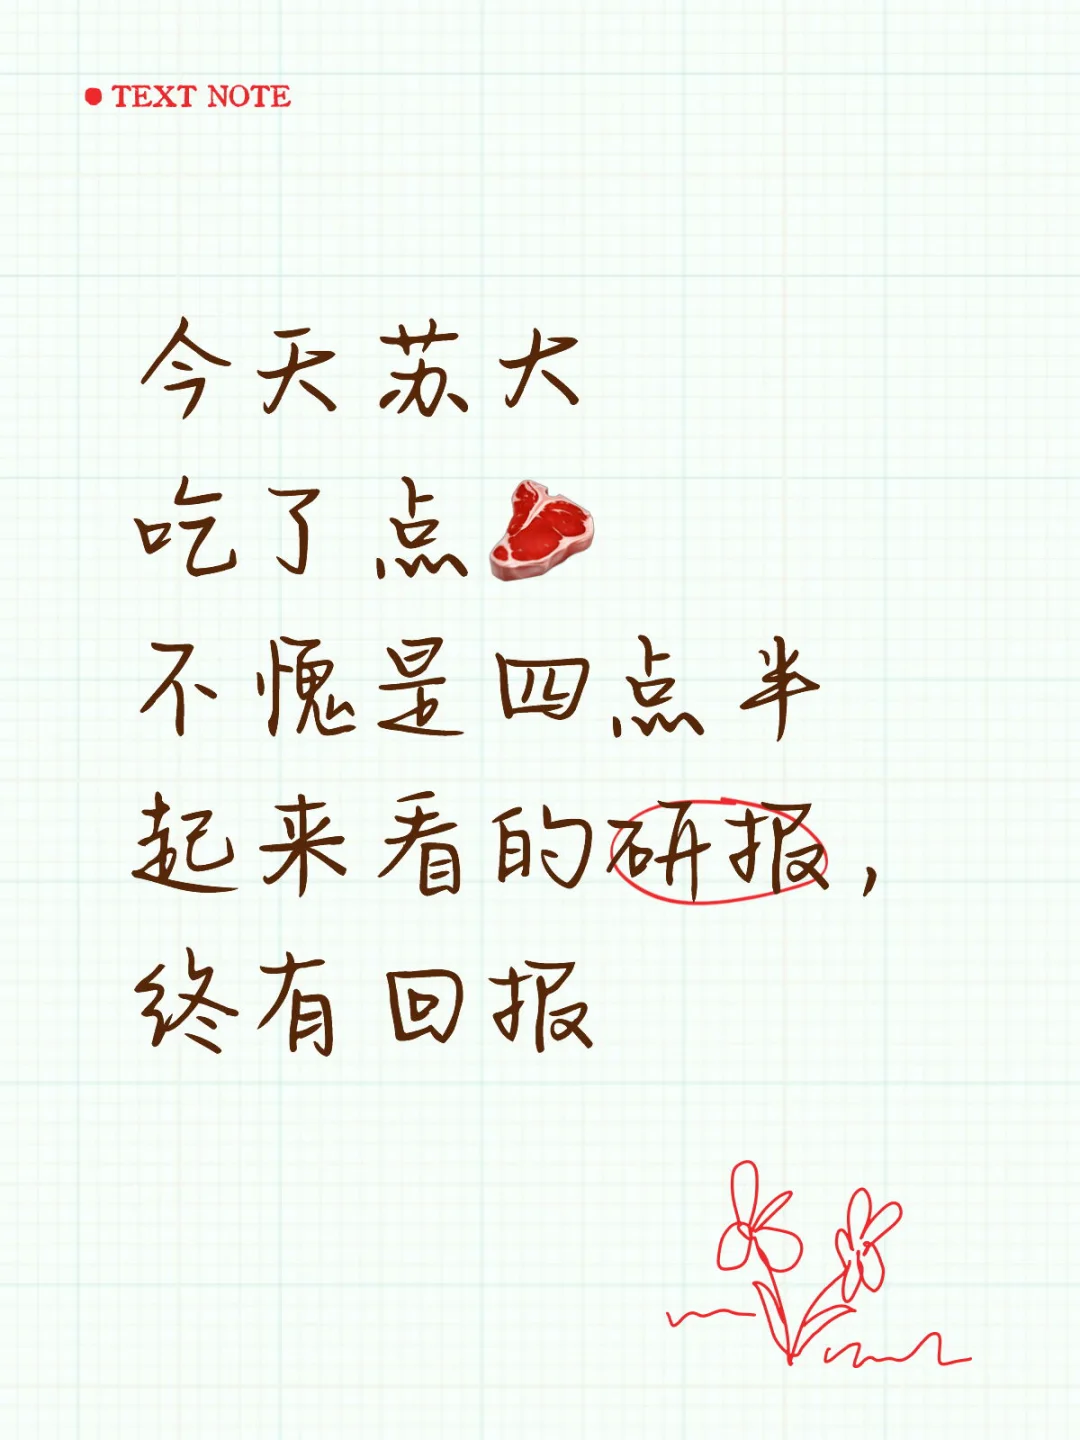 TEXT NOTE
今天苏大
吃了点🥩
不愧是四点半
起来看的研报，
终有回报